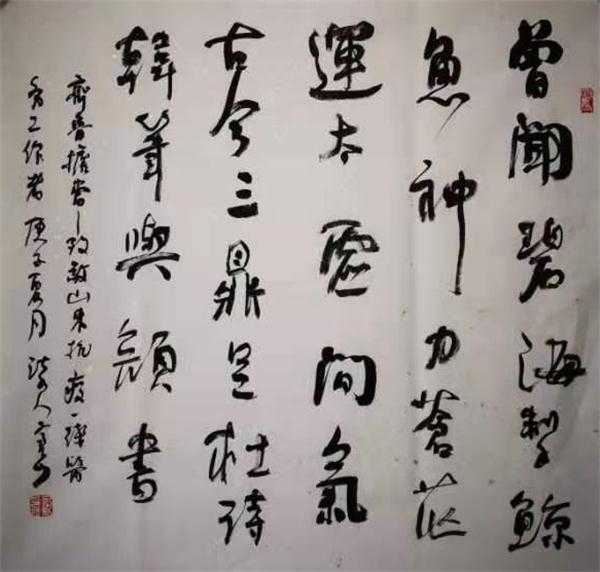 曾聞碧海掣鯨
魚神力蒼茫
運太虛間氣
古今三鼎足杜詩
韓筆與顏書
齊魯擔當—致敬山東抗疫一線醫
務工作者庚子夏月